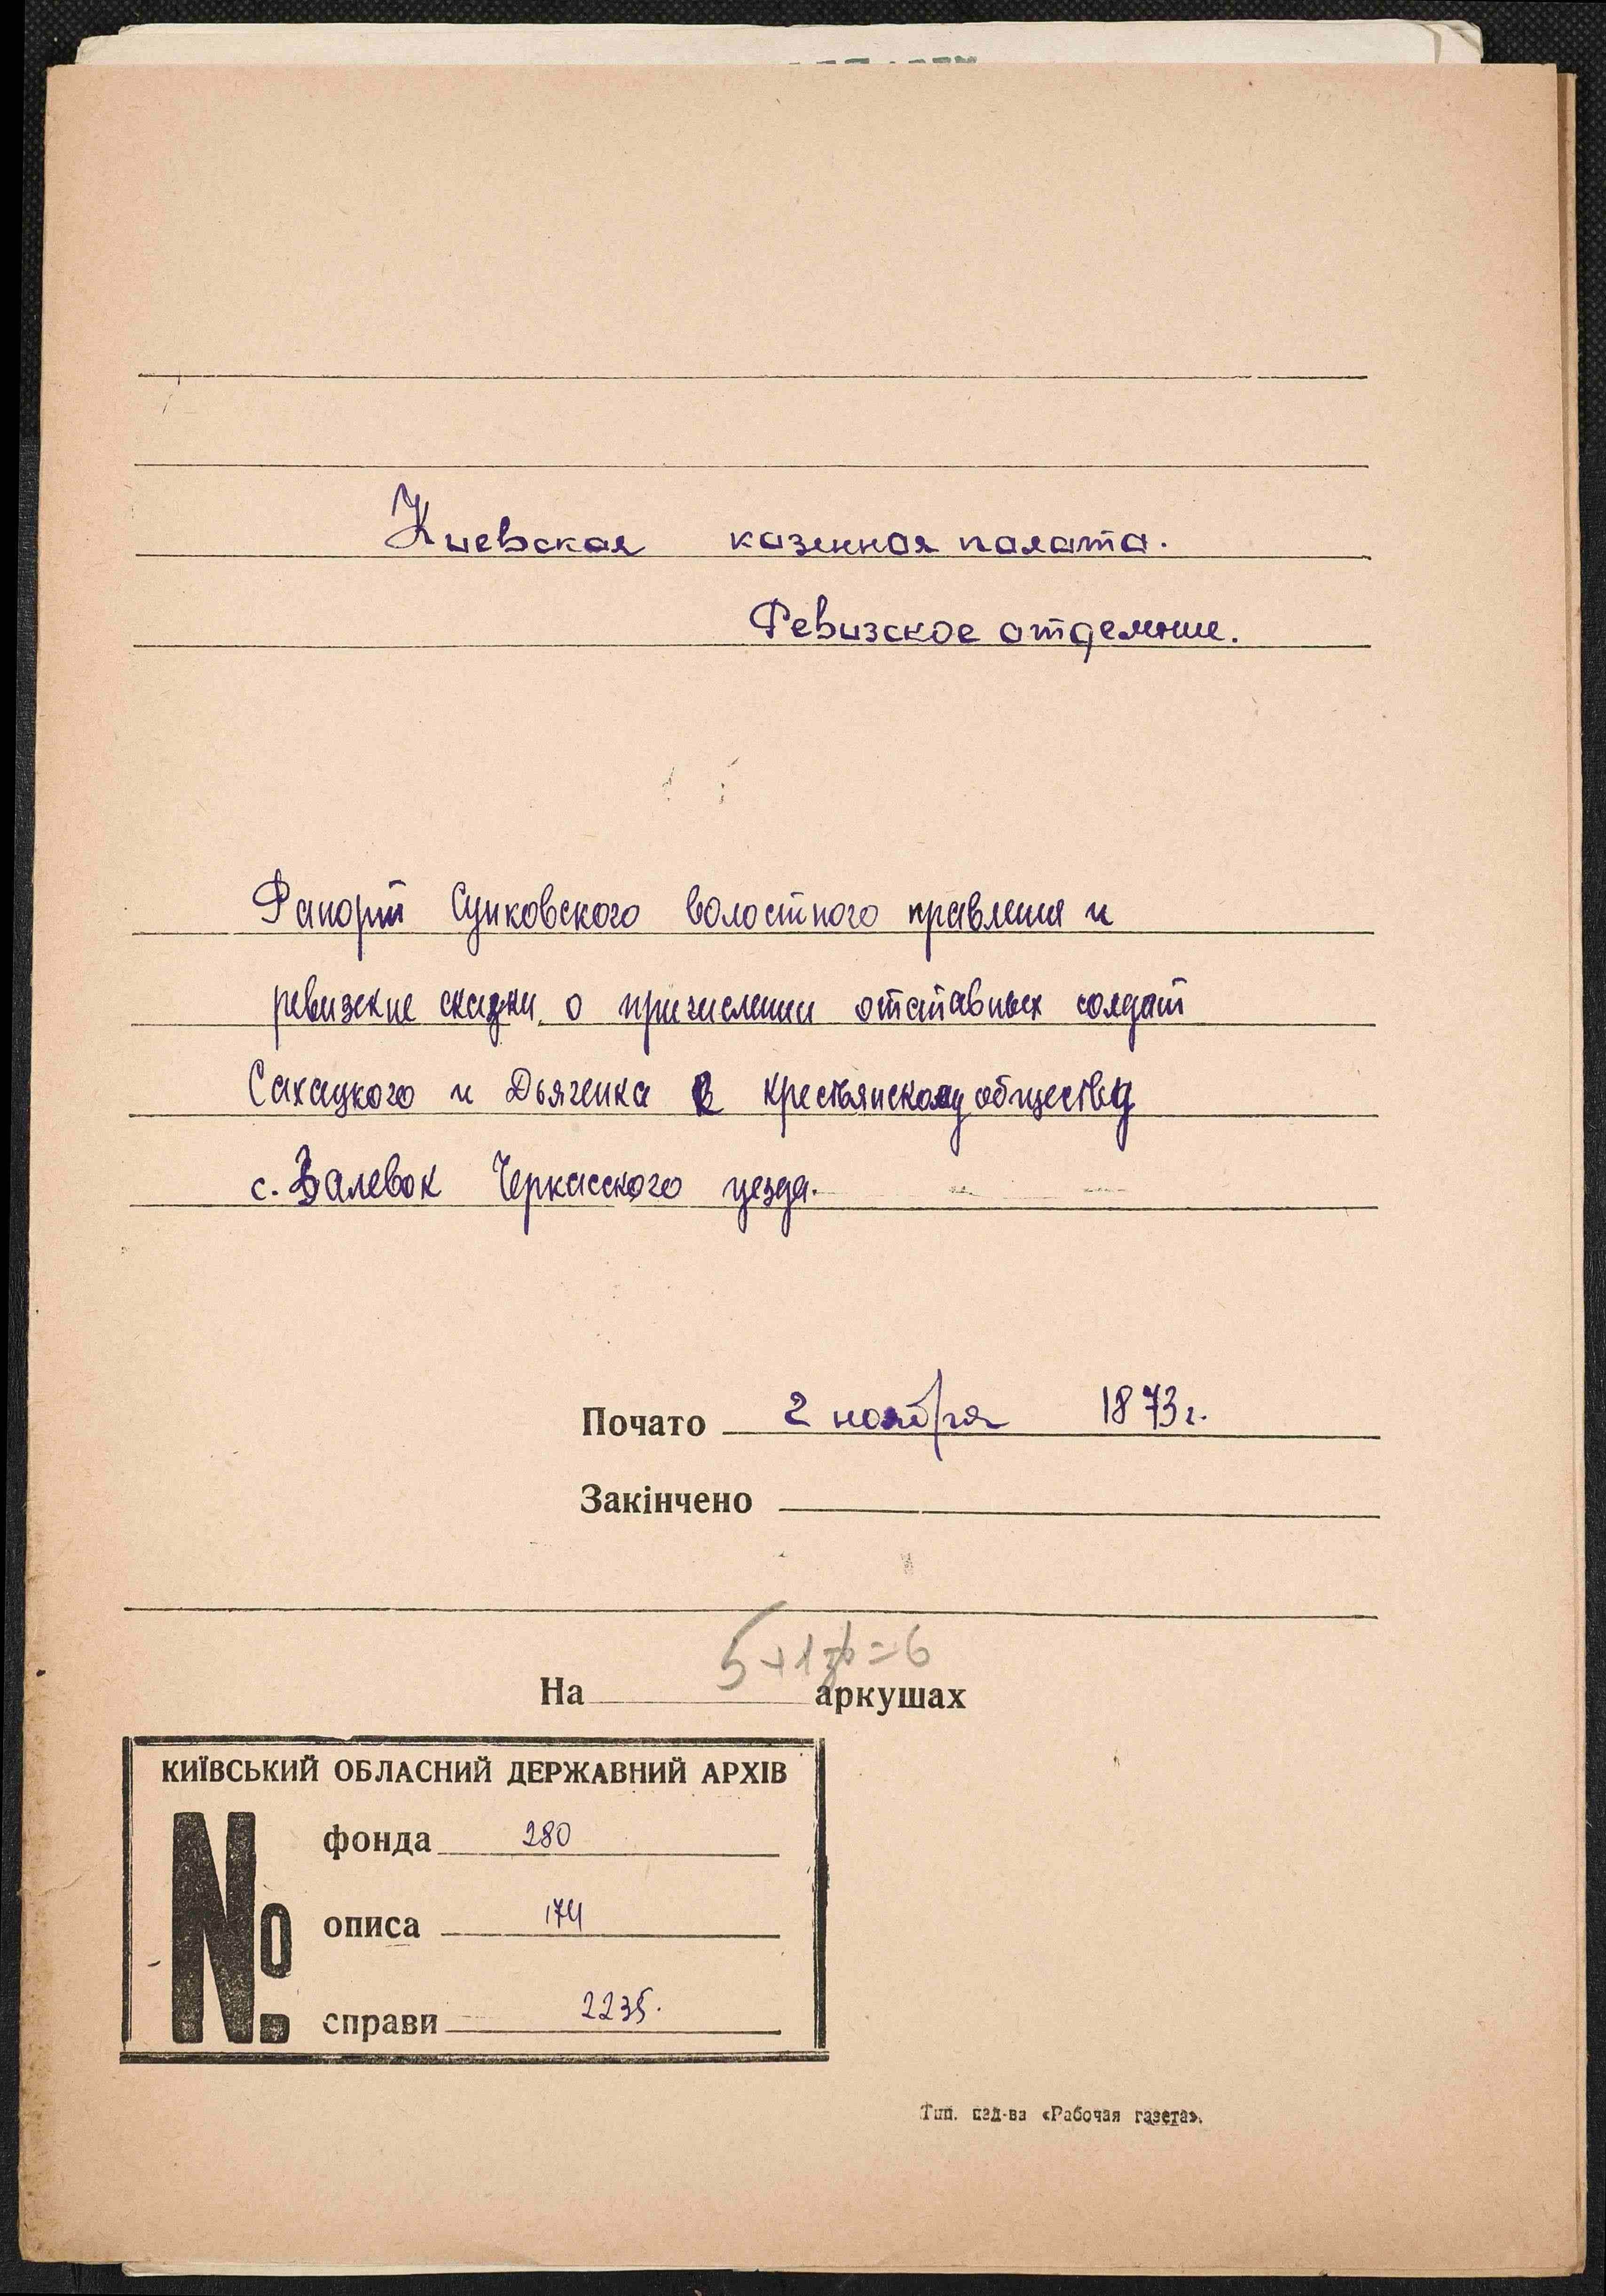 Киевская казенная палата.
Ревизское отделение.
Рапорт Сунковского волостного правления и
ревизские сказки о причислении отставных солдат
Сахацкого и Дьяченка к крестьянскому обществу
с. Валевок Черкасского уезда.
Почато 2 ноября 1873 г.
Закінчено
5+1зв=6
На аркушах
КИЇВСЬКИЙ ОБЛАСНИЙ ДЕРЖАВНИЙ АРХІВ
№
фонда 280
описа 174
справи 2235.
Тип. изд-ва «Рабочая газета».